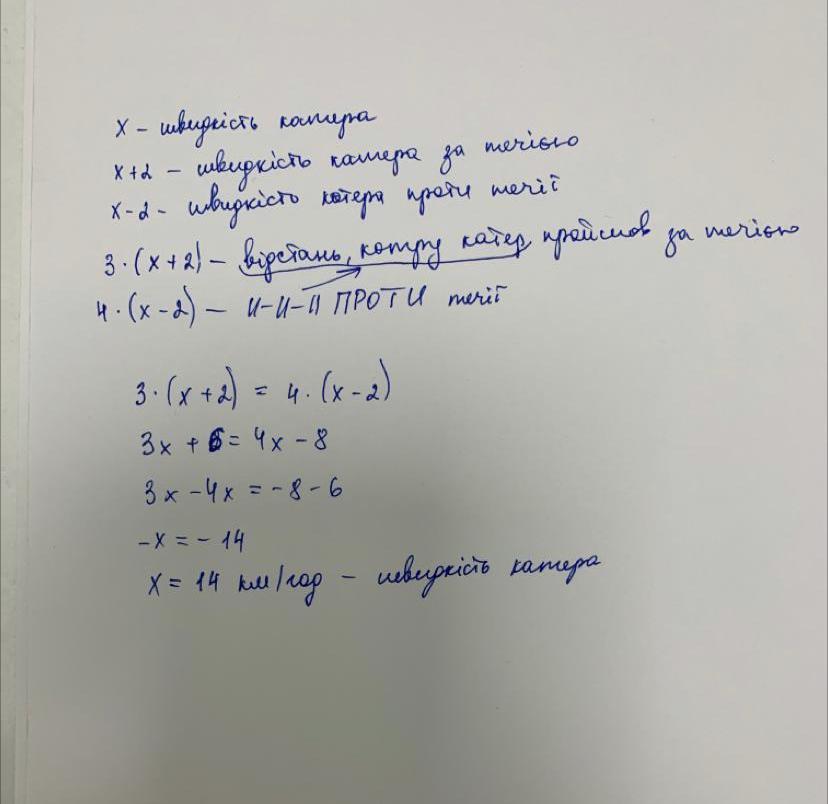 x – швидкість катера
x+2 – швидкість катера за течією
x-2 - швидкість катера проти течії
3·(x+2) – відстань, котру катер пройшов за течією
4·(x-2) – 11-11-11 ПРОТИ течії
3·(x+2) = 4·(x-2)
3x + 6 = 4x - 8
3x - 4x = - 8 - 6
-x = - 14
x = 14 км/год – швидкість катера